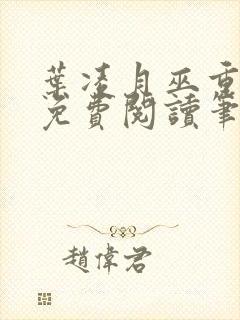 葉凌月巫重
免費閱讀筆
趙偉君